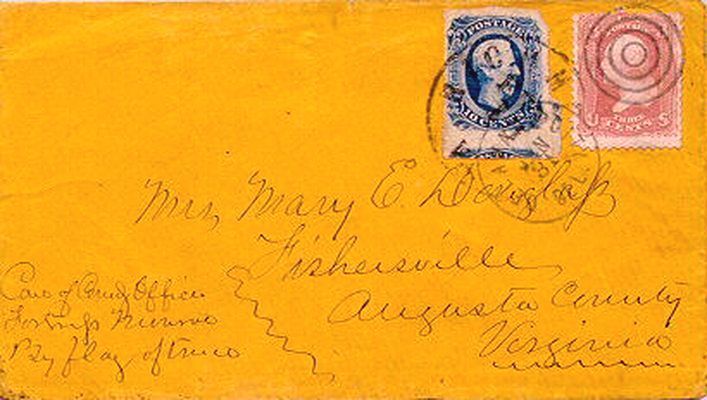 POSTAGE
10 CENTS
U S
THREE
CENTS
Mrs. Mary E. Douglass
Fishersville
Augusta County
Virginia
Care of Comdg Officer
Fortress Munroe
Pr flag of truce